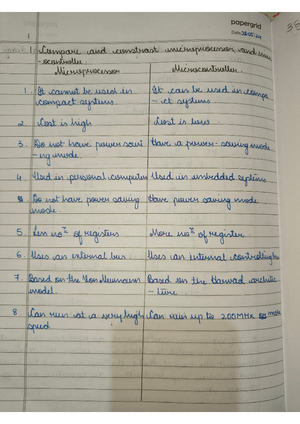 papergrid
Date: 28.05.24
1. Compare and constrast microprocessor and micro
-ocontroller.
Microprocessor Microcontroller.
1. It cannot be used in It can be used in compa
compact systems. - ct systems.
2 Cost is high Cost is low
3. Do not have power savi Have a power-saving mode
-ng mode.
4 Used in personal computer Used in embedded systems
5. Do not have power saving Have power saving mode.
mode.
5. Less no of registers More no of register
6. Uses an external bus. Uses an internal controlling bus
7. Based on the Von Neumann Based on the Harvard architec
model. - ture.
8 Can run at a very high Can run up to 200MHz
speed